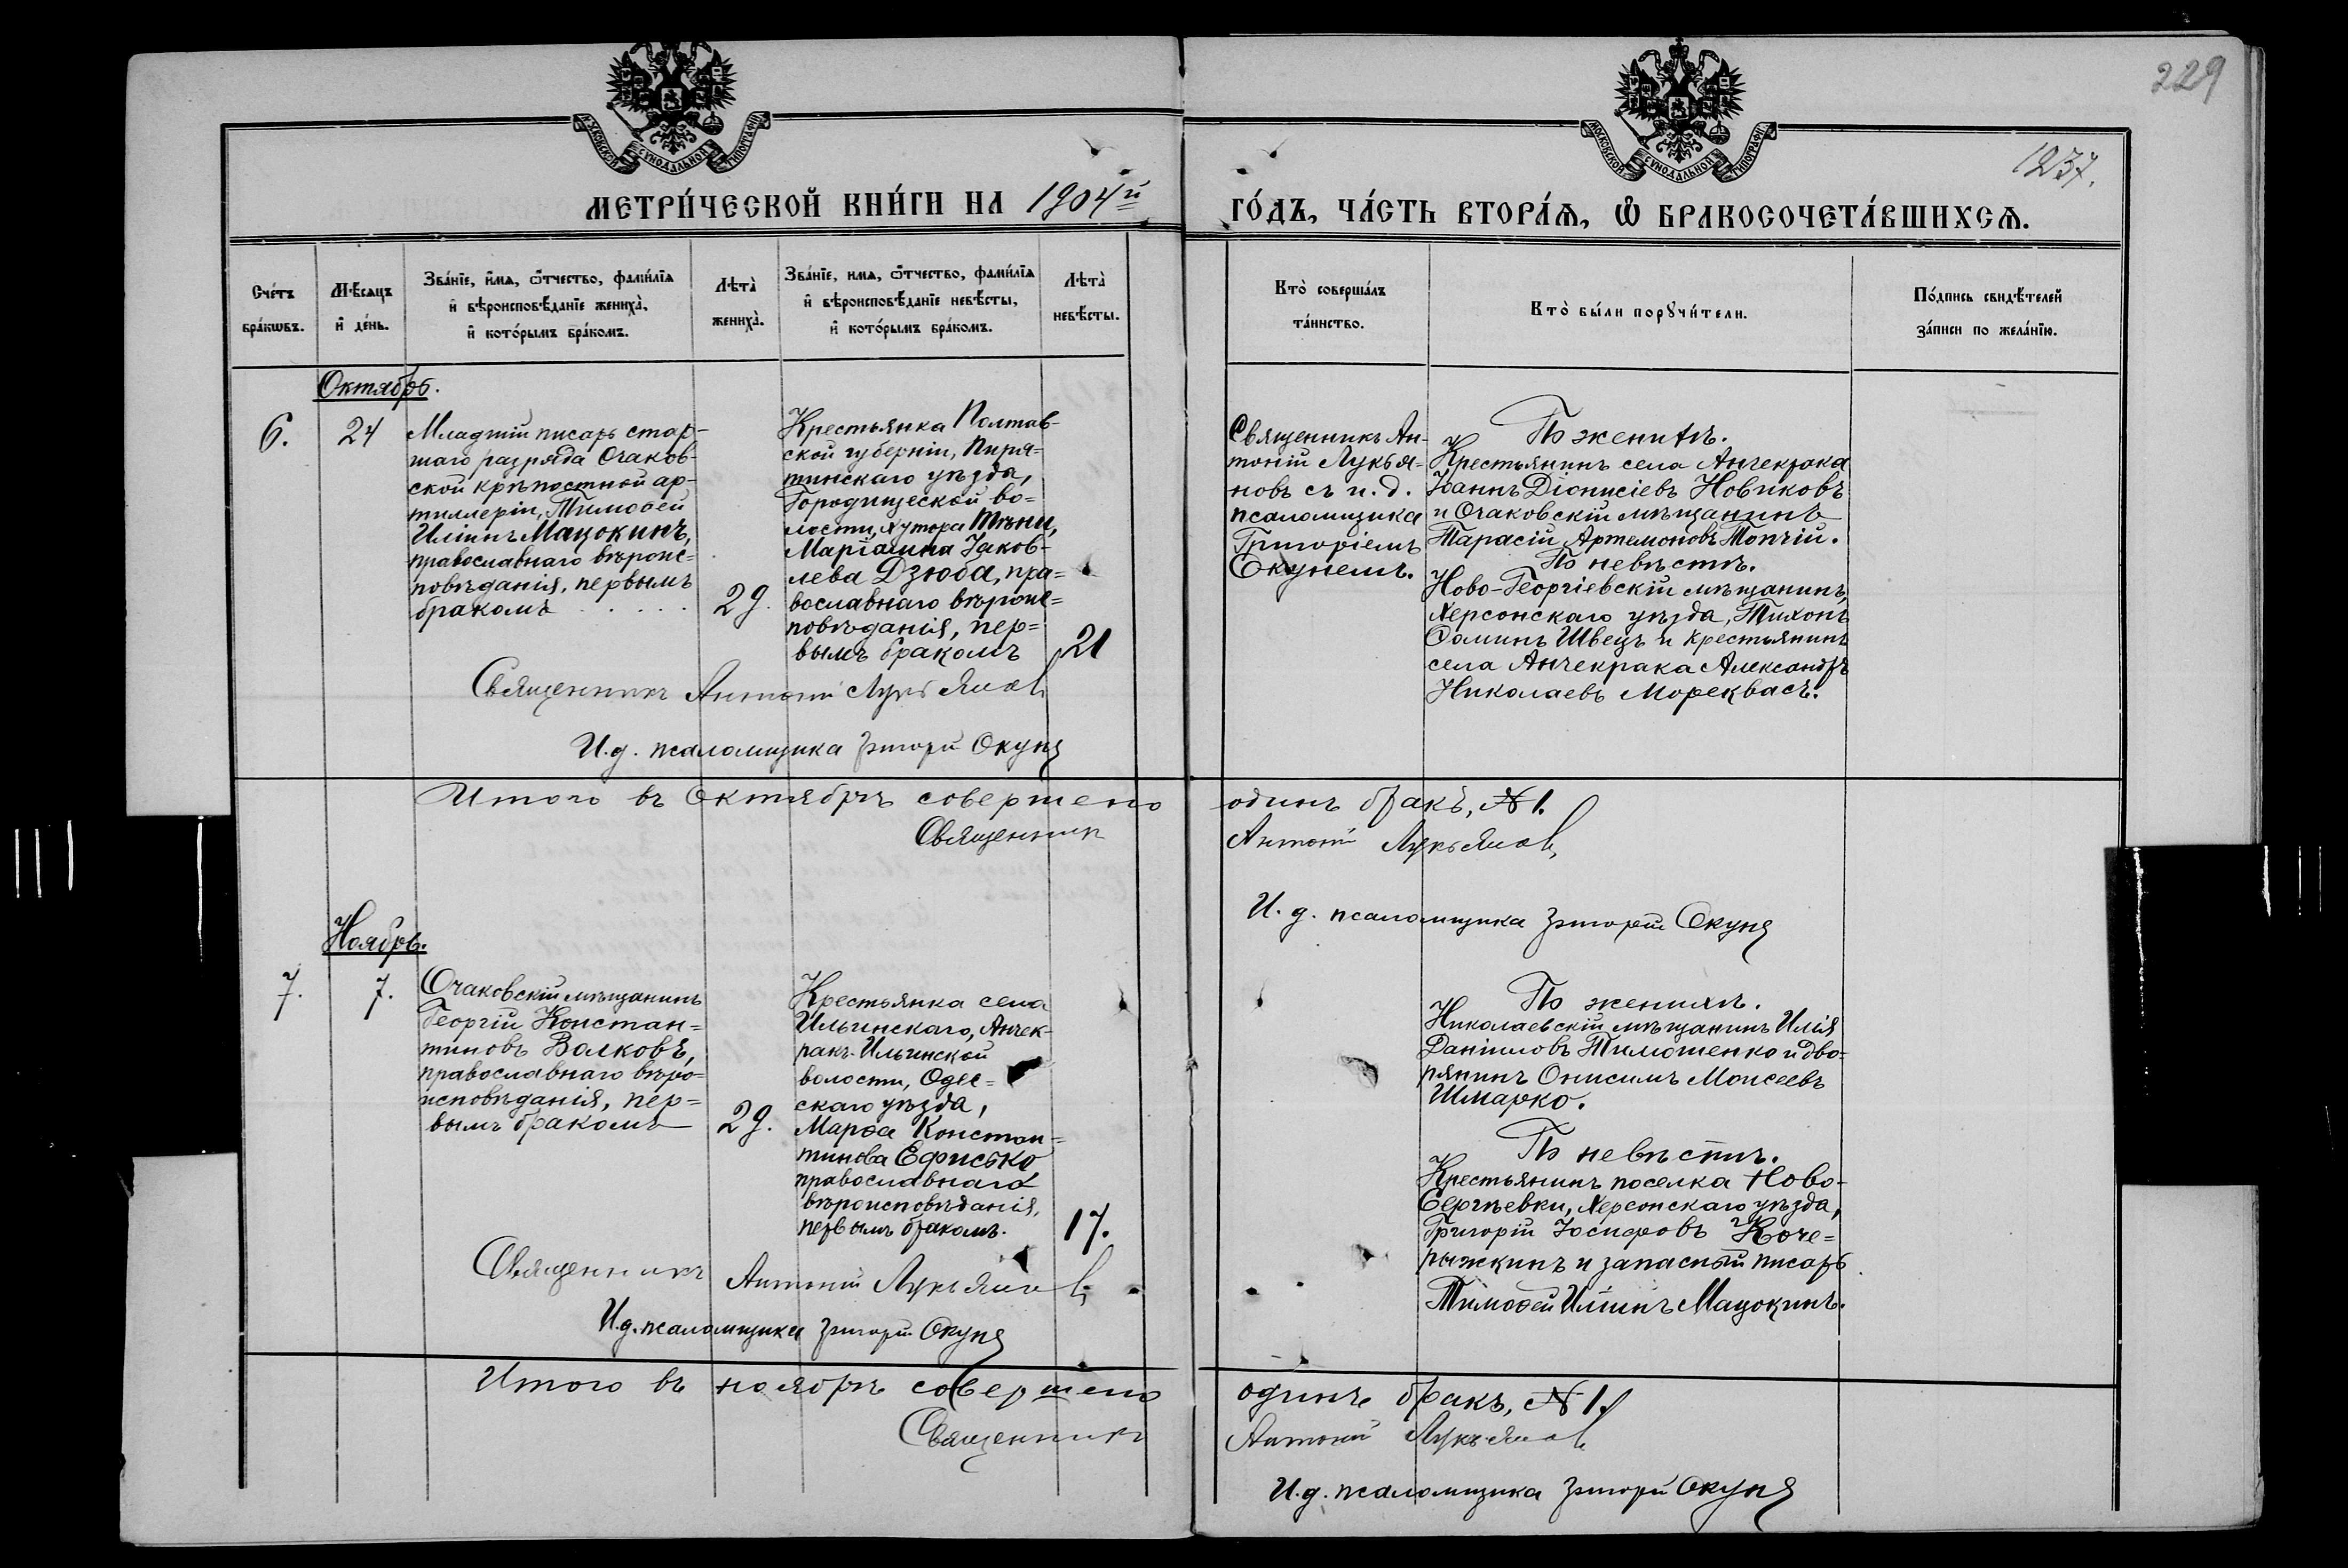 229
1237.
МОСКОВСКОЙ СѴНОДАЛЬНОЙ ТИПОГРАФІИ
МОСКОВСКОЙ СѴНОДАЛЬНОЙ ТИПОГРАФІИ
МЕТРИ́ЧЕСКОЙ КНИ́ГИ НА 1904й
ГО́ДЪ, ЧА́СТЬ ВТОРА́Ѧ, Ѽ БРАКОСОЧЕТА́ВШИХСѦ.
Сче́тъ
бра́кѡвъ.
Мѣ́сяцъ
и҆ де́нь.
Зва́нїе, и҆́мѧ, ѻ҆́тчество, фами́лїѧ
и҆ вѣроисповѣ́данїе жениха̀,
и҆ кото́рымъ бра́комъ.
Лѣта̀
жениха̀.
Зва́нїе, имѧ, ѻ҆́тчество, фами́лїѧ
и҆ вѣроисповѣ́данїе невѣ́сты,
и҆ кото́рымъ бра́комъ.
Лѣта̀
невѣ́сты.
Кто̀ соверша́лъ
та́инство.
Кто̀ бы́ли порꙋчи́тели.
По́дпись свидѣ́телей
за́писи по жела́нїю.
Октябрь.
6.
24
Младшій писарь стар-
шаго разряда Очаков-
ской крѣпостной ар-
тиллеріи, Тимоѳей
Иліинъ Мацокинъ,
православнаго вѣроис-
повѣданія, первымъ
бракомъ . . . . .
29.
Крестьянка Полтав-
ской губерніи, Пиря-
тинскаго уѣзда,
Городищеской во-
лости, хутора Тѣни,
Маріамна Іаков-
лева Дзюба, пра-
вославнаго вѣроис-
повѣданія, пер-
вымъ бракомъ
21
Священникъ Ан-
тоній Лукья-
новъ съ и. д.
псаломщика
Григоріемъ
Окунемъ.
По женихѣ.
Крестьянинъ села Анчекрака
Іоаннъ Діонисіевъ Новиковъ
и Очаковскій мѣщанинъ
Тарасій Артемоновъ Топчій.
По невѣстѣ.
Ново-Георгіевскій мѣщанинъ,
Херсонскаго уѣзда, Тихонъ
Ѳоминъ Швецъ и крестьянинъ
села Анчекрака Александръ
Николаевъ Мореквасъ.
Священникъ Антоній Лукьяновъ
И.д. псаломщика Григорій Окунь
Итого въ октябрѣ совершено одинъ бракъ, № 1.
Священникъ Антоній Лукьяновъ
И. д. псаломщика Григорій Окунь
Ноябрь.
7.
7.
Очаковскій мѣщанинъ
Георгій Констан-
тиновъ Волковъ,
православнаго вѣро-
исповѣданія, пер-
вымъ бракомъ
29.
Крестьянка села
Ильинскаго, Анчек-
ракъ-Ильинской
волости, Одес-
скаго уѣзда,
Марѳа Констан-
тинова Ефисько,
православнаго
вѣроисповѣданія,
первымъ бракомъ.
17.
По женихѣ.
Николаевскій мѣщанинъ Илія
Даніиловъ Тимошенко и дво-
рянинъ Онисимъ Моисеевъ
Шмарко.
По невѣстѣ.
Крестьянинъ поселка Ново-
Сергѣевки, Херсонскаго уѣзда,
Григорій Іосифовъ Коче-
рыжкинъ и запасный писарь
Тимоѳей Иліинъ Мацокинъ.
Священникъ Антоній Лукьяновъ
И.д. псаломщика Григорій Окунь
Итого въ ноябрѣ совершено одинъ бракъ, № 1.
Священникъ Антоній Лукьяновъ
И.д. псаломщика Григорій Окунь